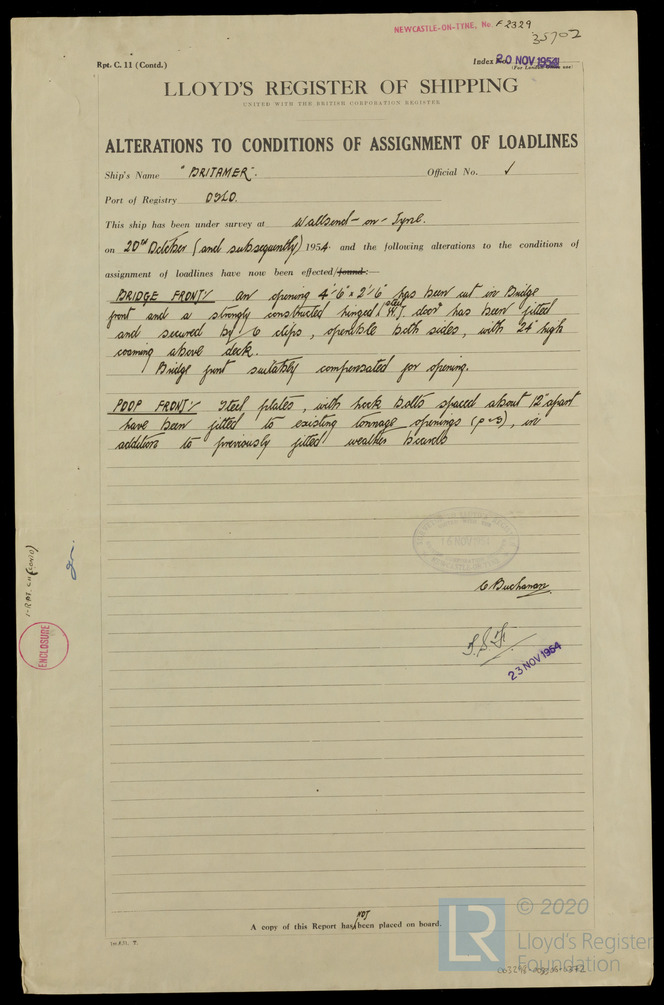 NEWCASTLE-ON-TYNE, No. F 2329
35702
Rpt. C. 11 (Contd.)
Index No. 20 NOV 1954
LLOYD'S REGISTER OF SHIPPING
UNITED WITH THE BRITISH CORPORATION REGISTER
ALTERATIONS TO CONDITIONS OF ASSIGNMENT OF LOADLINES
Ship's Name "BRITAMER".
Official No. ✓
Port of Registry OSLO.
This ship has been under survey at Wallsend-on-Tyne.
on 20th October (and subsequently) 1954 and the following alterations to the conditions of
assignment of loadlines have now been effected/found:—
BRIDGE FRONT:- An opening 4'-6" x 2'-6" has been cut in Bridge
front and a strongly constructed hinged steel W.T. door has been fitted
and secured by 6 clips, openable both sides, with 24" high
coaming above deck.
Bridge front suitably compensated for opening.
POOP FRONT:- Steel plates, with hook bolts spaced about 12" apart
have been fitted to existing tonnage openings (p & s), in
addition to previously fitted weather boards
16 NOV
C Buchanan
23 NOV 1954
1-RPT. C.11 (CONTD)
ENCLOSURE
A copy of this Report has NOT been placed on board.
LR
© 2020
Lloyd's Register
Foundation